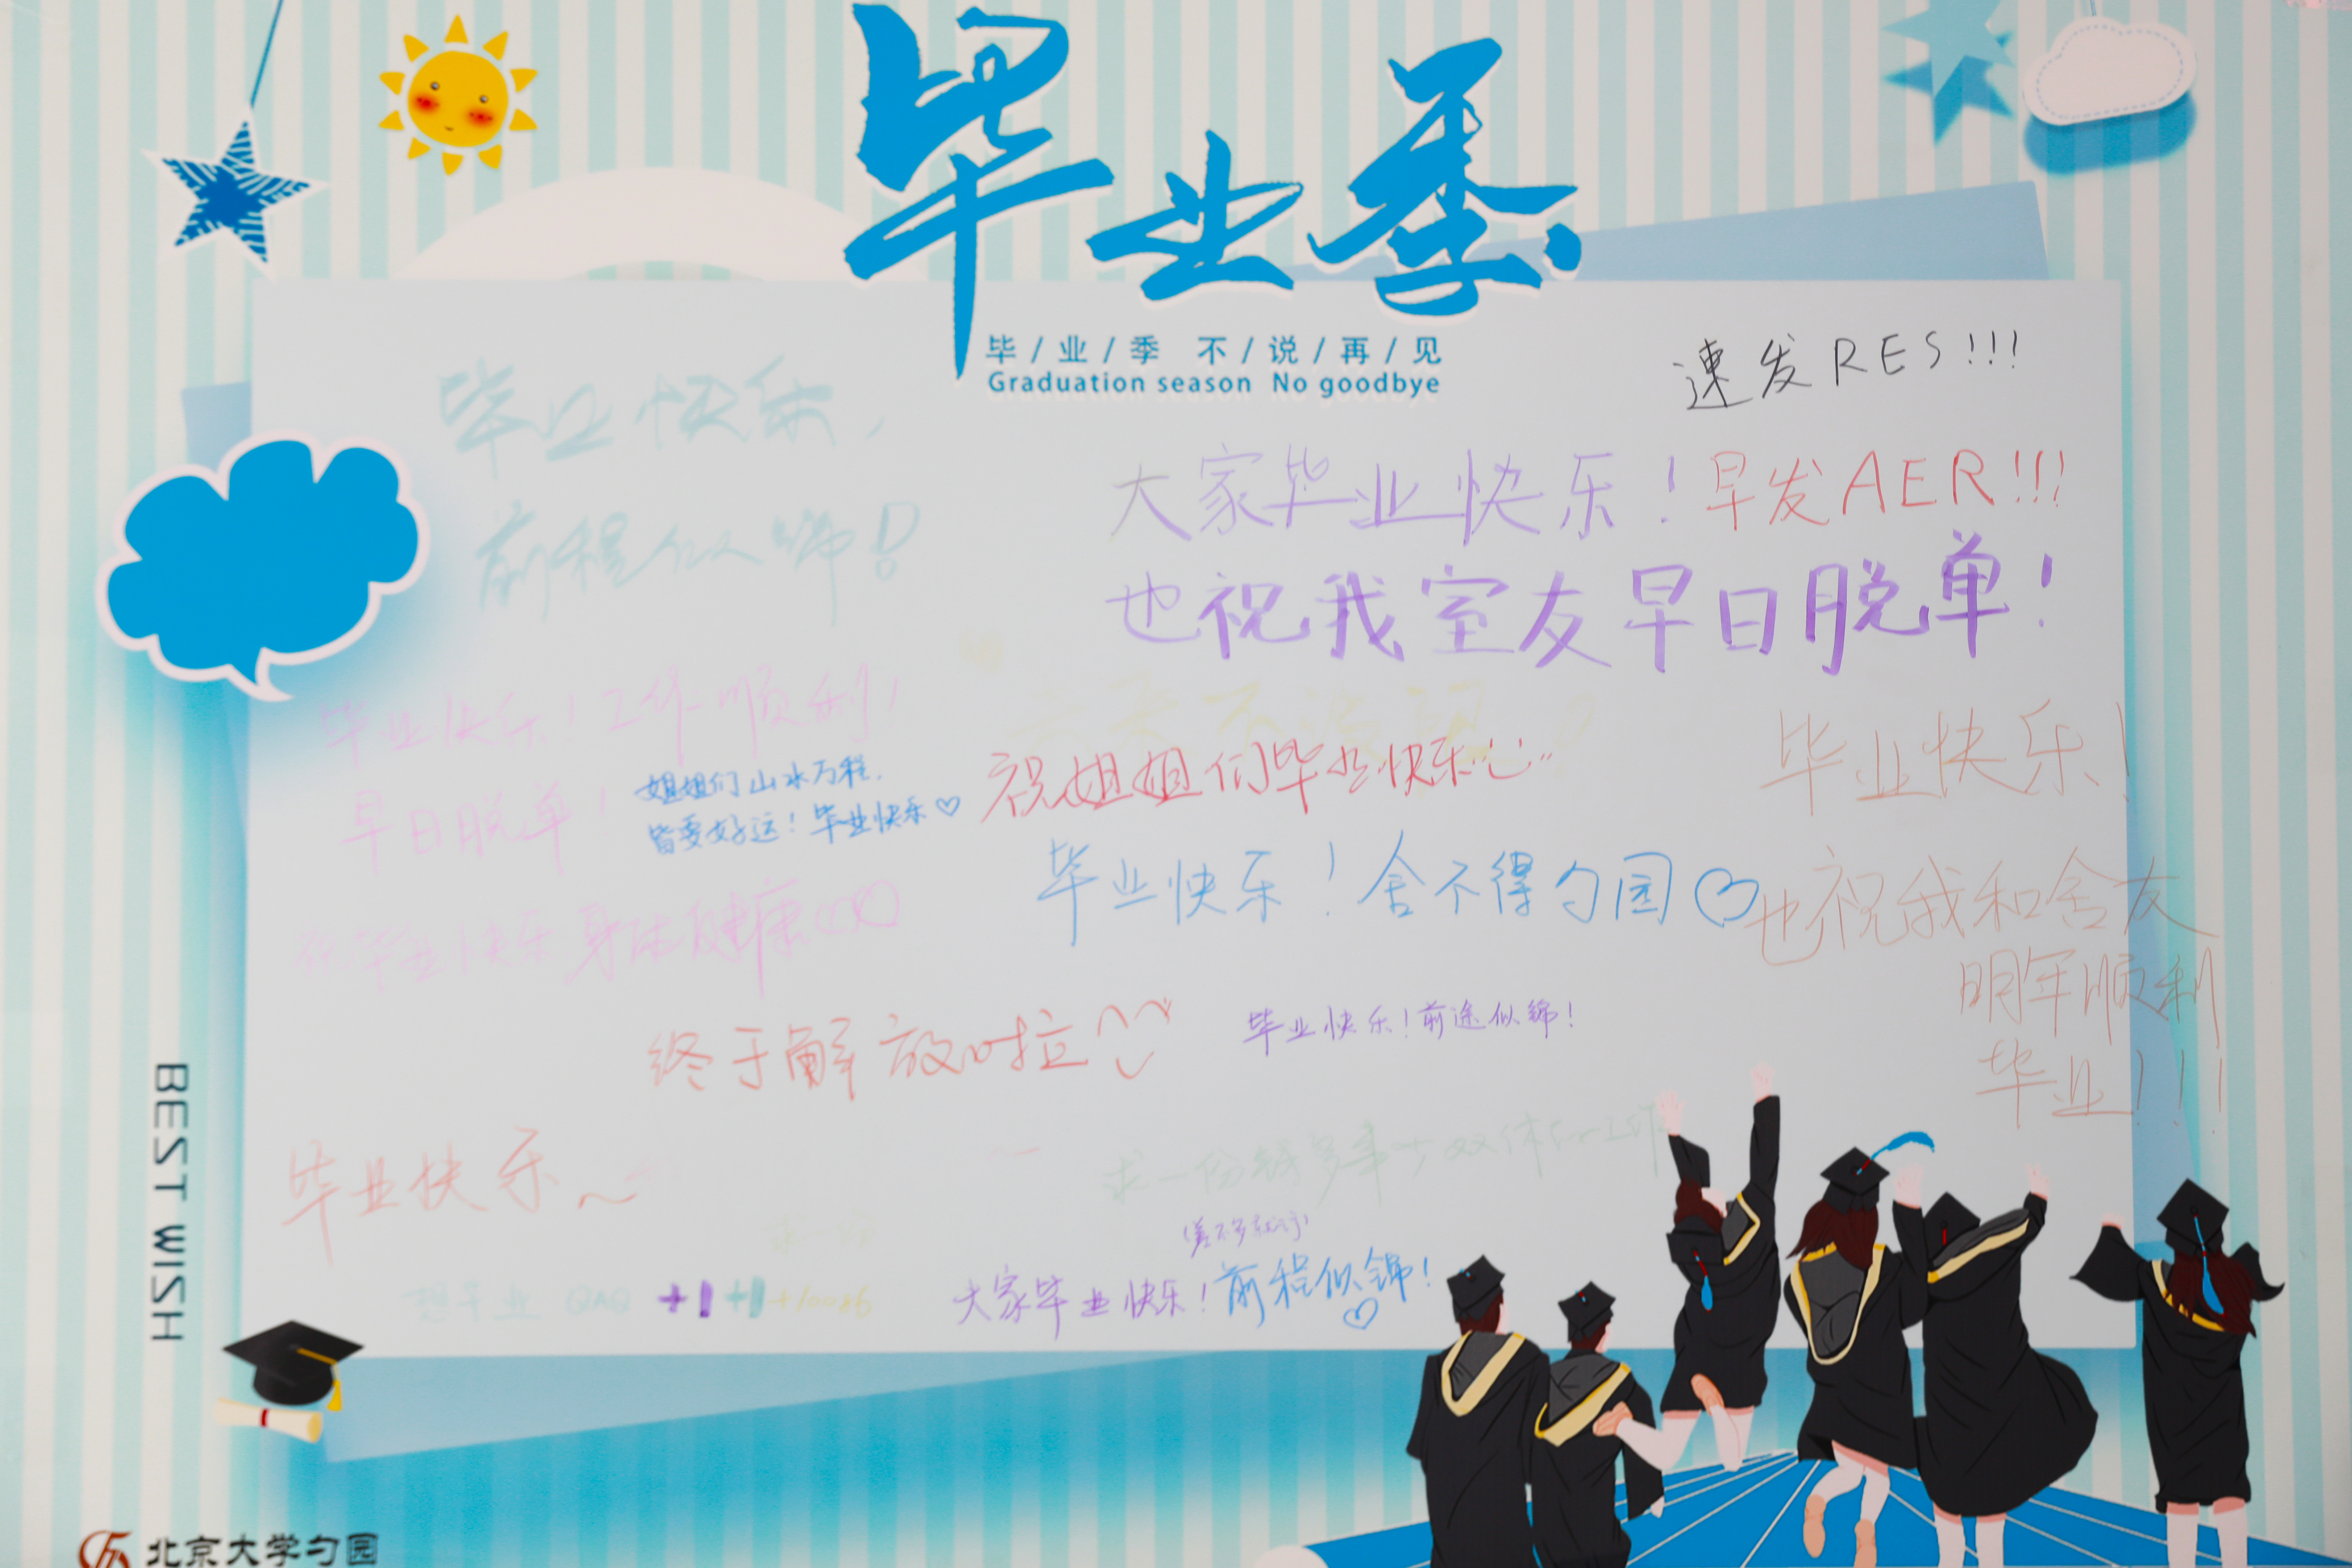 毕业季
毕/业/季 不/说/再/见
Graduation season No goodbye
速发RES!!!
毕业快乐，
前程似锦！
大家毕业快乐！早发AER!!!
也祝我室友早日脱单！
毕业快乐！工作顺利！
早日脱单！
姐姐们山水万程，
皆要好运！毕业快乐♡
祝姐姐们毕业快乐
毕业快乐！
毕业快乐！舍不得勺园♡
也祝我和舍友
明年顺利
毕业!!!
祝毕业快乐 身体健康
终于解放啦
毕业快乐！前途似锦！
毕业快乐～
求一份钱多事少双休的工作
求一份
(差不多就行)
想毕业 QAQ +1 +1 +10086
大家毕业快乐！前程似锦！♡
BEST WISH
北京大学勺园